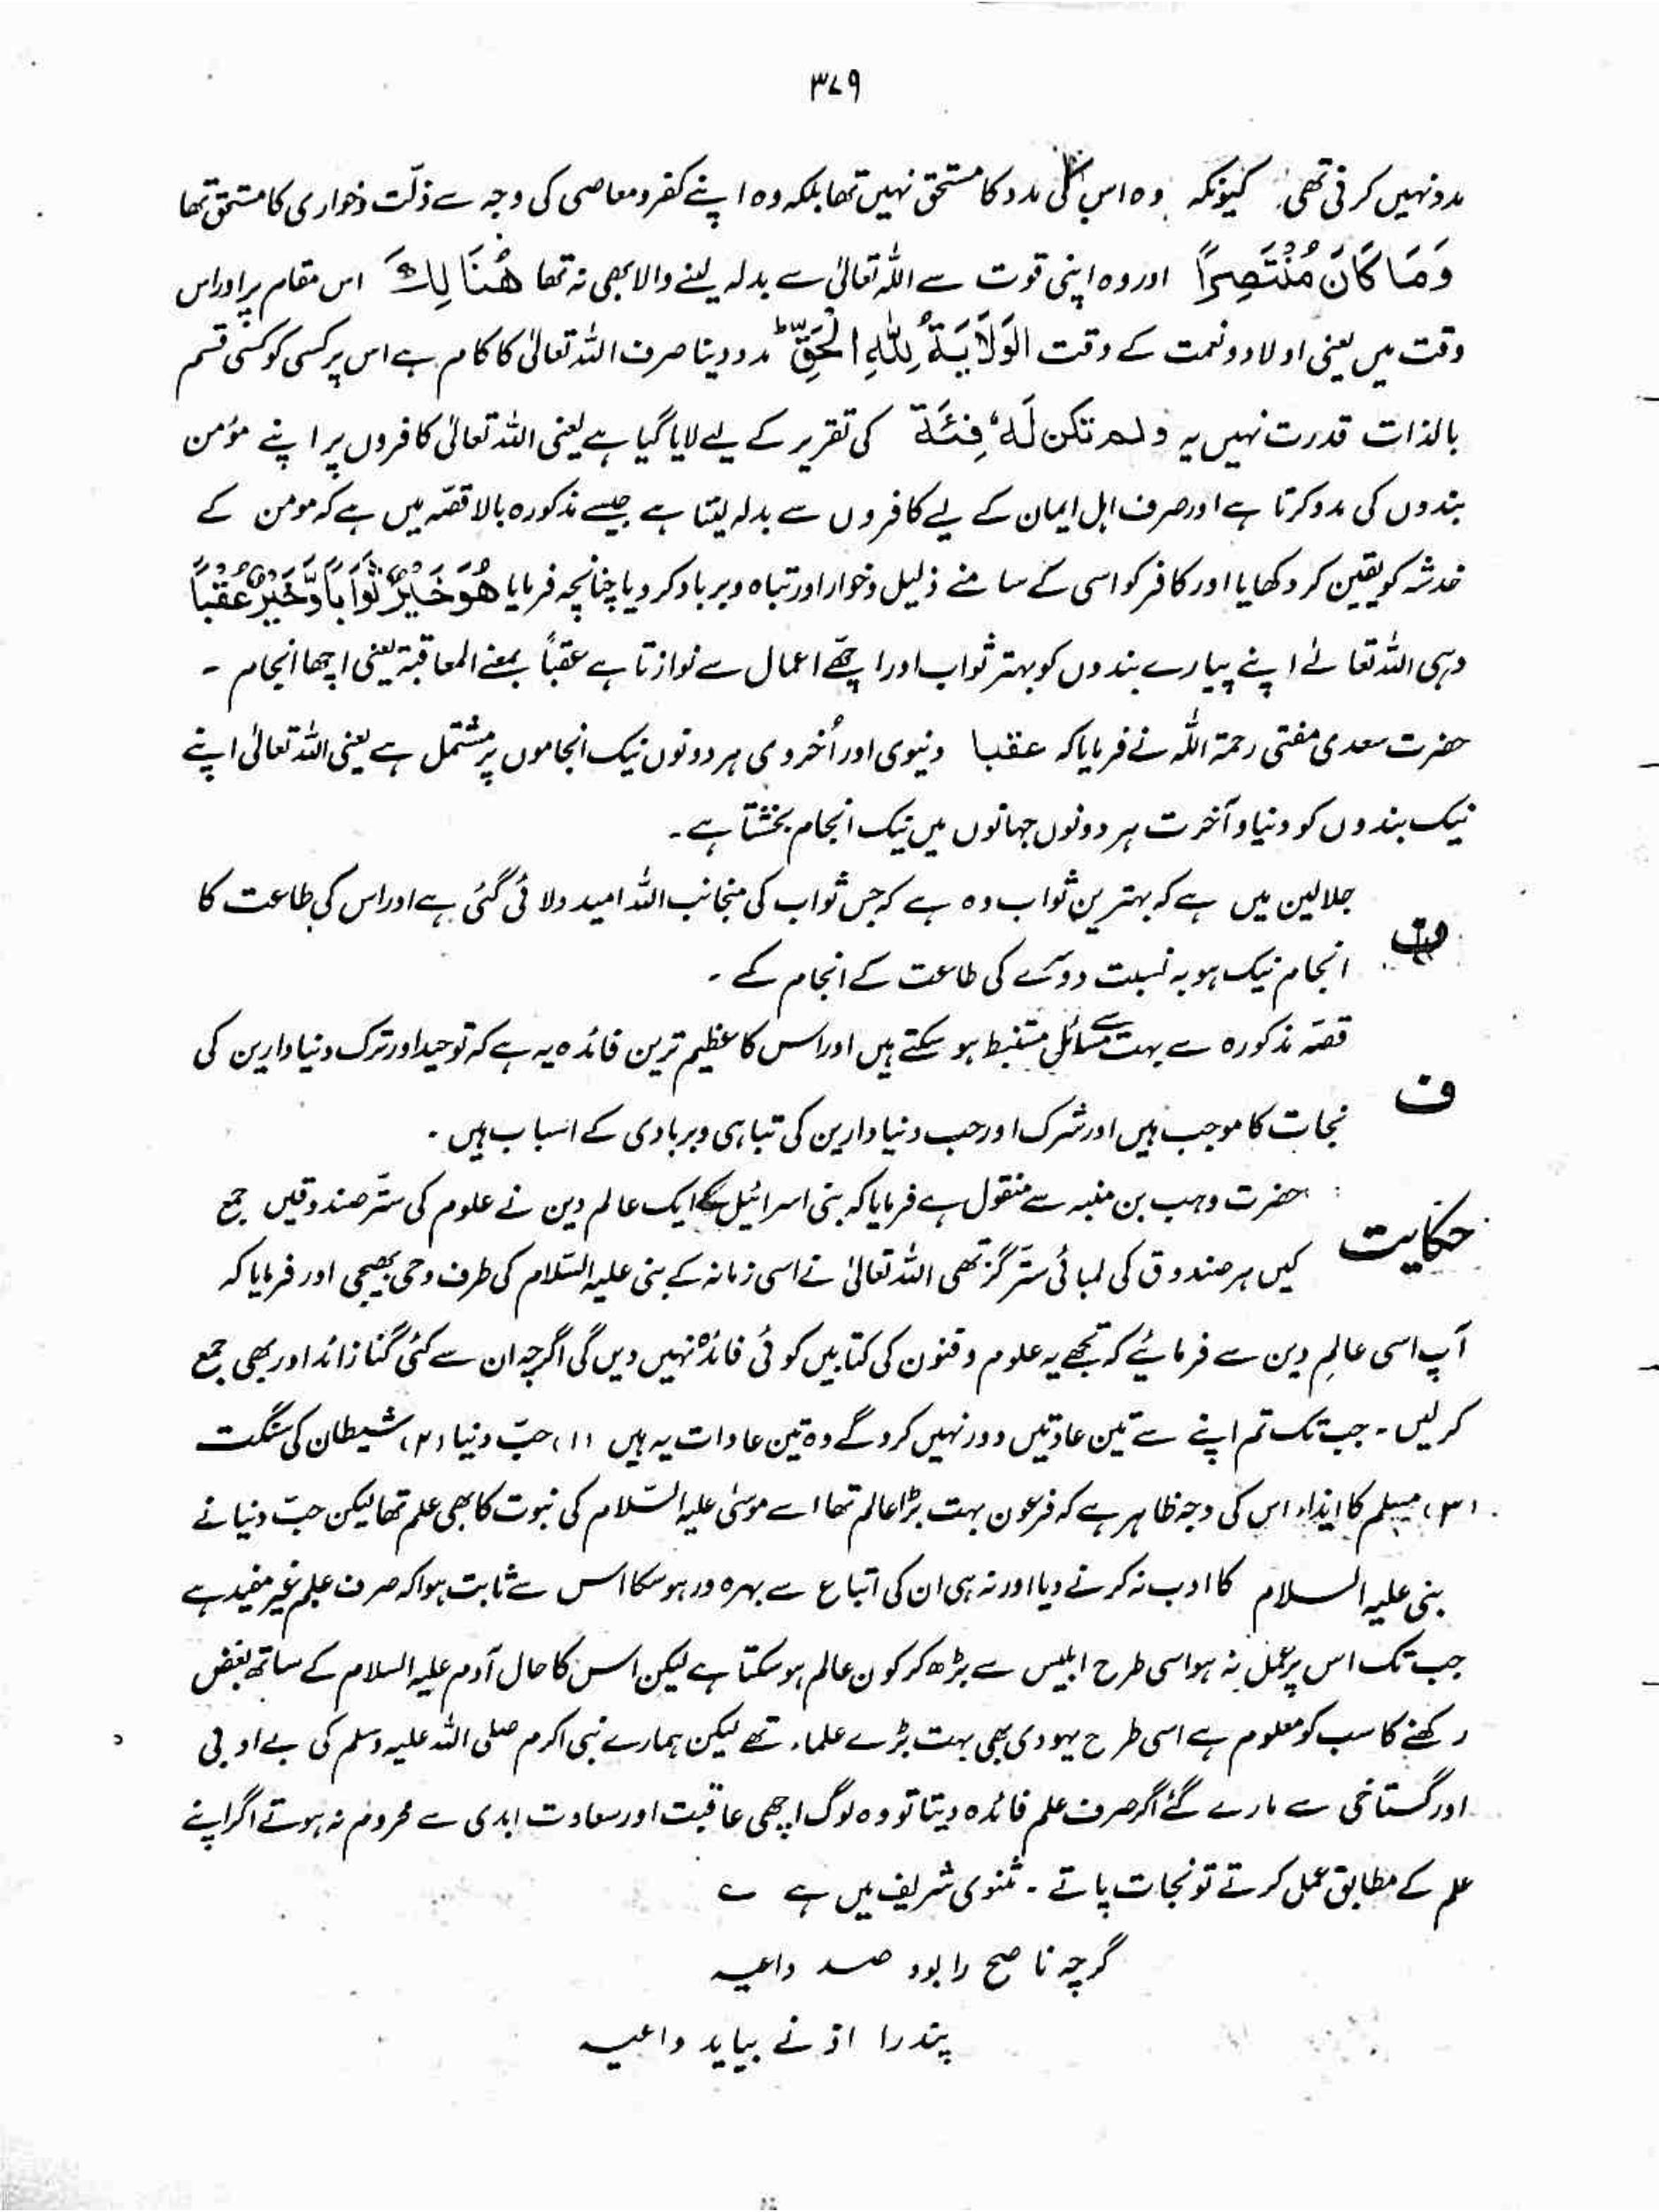 ۳۷۹
مدد نہیں کرنی تھی۔ کیونکہ وہ اس کی مدد کا مستحق نہیں تھا بلکہ وہ اپنے کفر و معاصی کی وجہ سے ذلّت و خواری کا مستحق تھا
وَمَا كَانَ مُنْتَصِرًا اور وہ اپنی قوت سے اللہ تعالیٰ سے بدلہ لینے والا بھی نہ تھا هُنَالِكَ اس مقام پر اور اس
وقت میں یعنی اولاد و نعمت کے وقت الْوَلَايَةُ لِلّٰهِ الْحَقِّ ؕ مدد دینا صرف اللہ تعالیٰ کا کام ہے اس پر کسی کو کسی قسم
بالذات قدرت نہیں یہ ولم تکن لَهٗ فِئَةٌ کی تقریر کے لیے لایا گیا ہے یعنی اللہ تعالیٰ کافروں پر اپنے مؤمن
بندوں کی مدد کرتا ہے اور صرف اہل ایمان کے لیے کافروں سے بدلہ لیتا ہے جیسے مذکورہ بالا قصّہ میں ہے کہ مومن کے
خدشہ کو یقین کر دکھایا اور کافر کو اسی کے سامنے ذلیل و خوار اور تباہ و برباد کر دیا چنانچہ فرمایا هُوَ خَيْرٌ ثَوَابًا وَّخَيْرٌ عُقْبًا
وہی اللہ تعالےٰ اپنے پیارے بندوں کو بہتر ثواب اور اچھے اعمال سے نوازتا ہے عقباً بمعنے المعاقبۃ یعنی اچھا انجام ۔
حضرت سعدی مفتی رحمۃ اللہ نے فرمایا کہ عقبا دنیوی اور اُخروی ہر دونوں نیک انجاموں پر مشتمل ہے یعنی اللہ تعالیٰ اپنے
نیک بندوں کو دنیا و آخرت ہر دونوں جہانوں میں نیک انجام بخشتا ہے۔
جلالین میں ہے کہ بہترین ثواب وہ ہے کہ جس ثواب کی منجانب اللہ امید دلائی گئی ہے اور اس کی طاعت کا
ف
انجام نیک ہو بہ نسبت دوسرے کی طاعت کے انجام کے ۔
قصّہ مذکورہ سے بہت سے مسائل مستنبط ہو سکتے ہیں اور اس کا عظیم ترین فائدہ یہ ہے کہ توحید اور ترک دنیا دارین کی
ف
نجات کا موجب ہیں اور شرک اور حب دنیا دارین کی تباہی و بربادی کے اسباب ہیں ۔
حکایت : حضرت وہب بن منبہ سے منقول ہے فرمایا کہ بنی اسرائیل کے ایک عالم دین نے علوم کی ستّر صندوقیں جمع
کیں ہر صندوق کی لمبائی ستّر گز تھی اللہ تعالیٰ نے اسی زمانہ کے بنی علیہ السّلام کی طرف وحی بھیجی اور فرمایا کہ
آپ اسی عالمِ دین سے فرمائیے کہ تجھے یہ علوم و فنون کی کتابیں کوئی فائدہ نہیں دیں گی اگرچہ ان سے کئی گنا زائد اور بھی جمع
کر لیں ۔ جب تک تم اپنے سے تین عادتیں دور نہیں کرو گے وہ تین عادات یہ ہیں (۱) حبّ دنیا (۲) شیطان کی سنگت
(۳) مسلم کا ایذاء اس کی وجہ ظاہر ہے کہ فرعون بہت بڑا عالم تھا اسے موسیٰ علیہ السّلام کی نبوت کا بھی علم تھا لیکن حبّ دنیا نے
بنی علیہ السلام کا ادب نہ کرنے دیا اور نہ ہی ان کی اتباع سے بہرہ ور ہو سکا اس سے ثابت ہوا کہ صرف علم غیر مفید ہے
جب تک اس پر عمل نہ ہو اسی طرح ابلیس سے بڑھ کر کون عالم ہو سکتا ہے لیکن اس کا حال آدم علیہ السلام کے ساتھ بغض
رکھنے کا سب کو معلوم ہے اسی طرح یہودی بھی بہت بڑے علماء تھے لیکن ہمارے نبی اکرم صلی اللہ علیہ وسلم کی بے ادبی
اور گستاخی سے مارے گئے اگر صرف علم فائدہ دیتا تو وہ لوگ اچھی عاقبت اور سعادت ابدی سے محروم نہ ہوتے اگر اپنے
علم کے مطابق عمل کرتے تو نجات پاتے ۔ مثنوی شریف میں ہے ؎
گرچہ ناصح را بود صد داعیہ
پند را اذنے بباید داعیہ